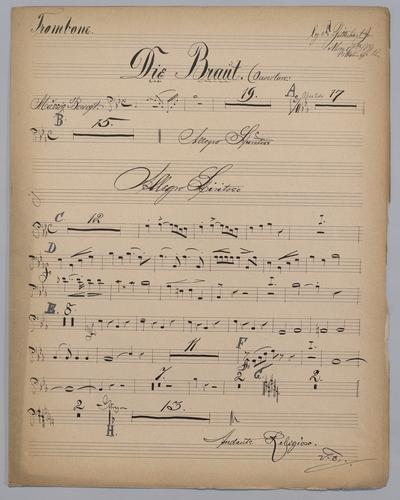 Trombone.
Die Braut. (Ouverture)
Mässig Bewegt. 19. A 17
B 15. Allegro Spiritoso
Allegro Spiritoso
C 12 1.
D
1.
E. 8
11 F 17 1.
7 2 G. 2
2 H. 15.
Andante Religioso.
V.S.